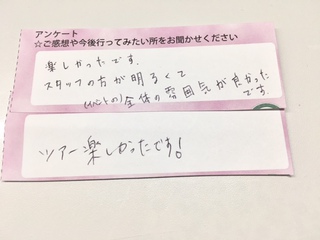 アンケート
☆ご感想や今後行ってみたい所をお聞かせください
楽しかったです.
スタッフの方が明るくて
(バスの)全体の雰囲気が良かった
です.
ツアー楽しかったです!